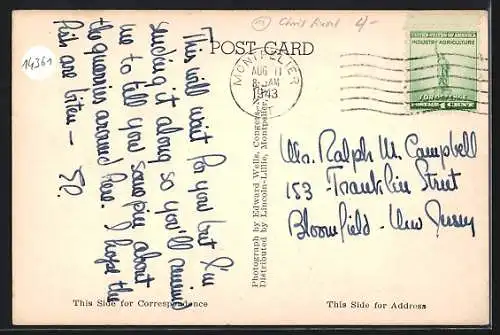 Chris Axel 4/-
14361
POST CARD
MONTPELIER
AUG 11
8-AM
1943
UNITED STATES OF AMERICA
INDUSTRY AGRICULTURE
FOR DEFENSE
1 CENT
This will wait for you but I'm
sending it along so you'll remind
me to tell you some pin about
the quarries around here. I hope the
fish are biten —
Photograph by Edward Wells, Congers,
Distributed by Lincoln-Lillie, Montpelier,
Mr. Ralph M. Campbell
153 - Franklin Street
Bloomfield - New Jersey
This Side for Correspondence
This Side for Address